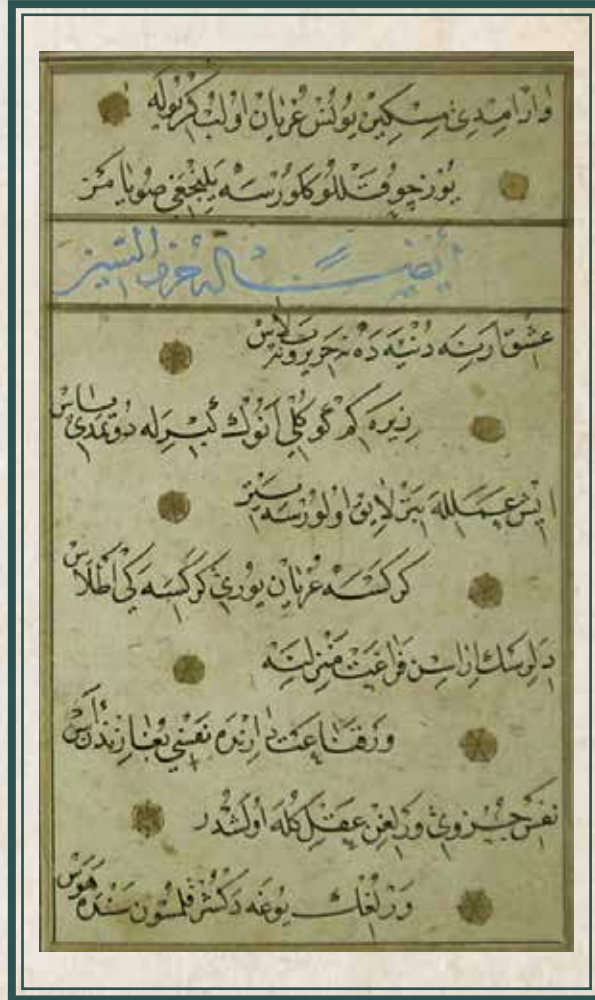 وار امدي مسكين يونس عريان اولب كر بويله
يوز چوق قتللو كلورسه يلنجغي صويا مكز
ايضا له في حرف السين
عشق ارينه دنيه ده نه حرير و نه پلاس
زيره كم كوكلي انوك كبيرله دوتمدي پاس
ايش عمللا بتر لايق اولورسه سير
كركسه عريان يوري كركسه كي اطلاس
دلرسك ايراسن فراغت منزلنه
ور قناعت دارنده نفسي بوغازندن اس
نفس جزوي ورلغن عقل كله اولشدر
ورلغك يوغه دكشر قلسون سنده هوس